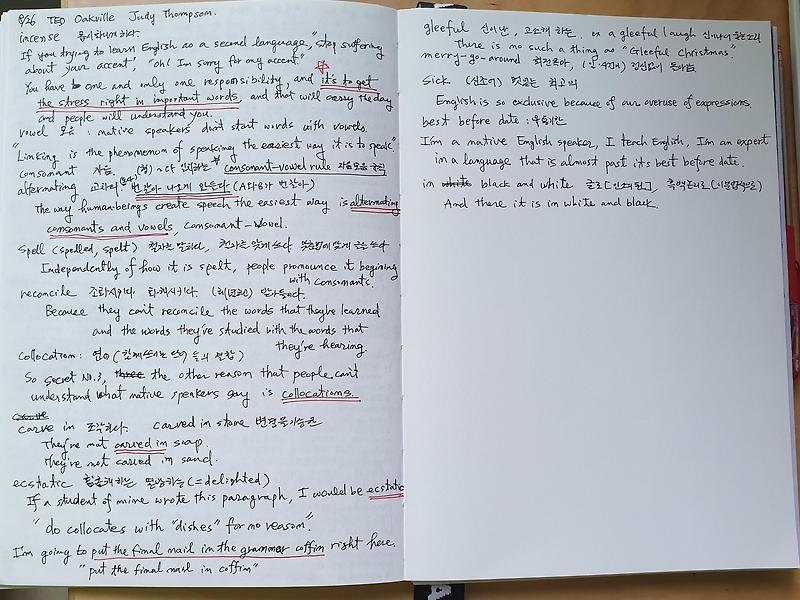 8/26 TED Oakville Judy Thompson.
incense 몹시화나게하다.
If you trying to learn English as a second language, "stop suffering
about your accent", "oh! I'm sorry for my accent"
You have one and only one responsibility, and it's to get
the stress right in important words, and that will carry the day
and people will understand you.
vowel 모음 : native speakers don't start words with vowels.
"Linking is the phenomenon of speaking the easiest way it is to speak"
consonant 자음. consonant-vowel rule 자음모음 규칙
alternating 번갈아 나오게 만든다 (A와B가 번갈아~)
The way human beings create speech the easiest way is alternating
consonants and vowels, consonant-vowel.
spell (spelled, spelt) 철자를 말하다, 철자를 맞게 쓰다.
Independently of how it is spelt, people pronounce it begining
with consonants.
reconcile 조화시키다 화해시키다.
Because they can't reconcile the words that they've learned
and the words they've studied with the words that
they're hearing.
collocation : 연어 (함께쓰이는 단어 들의 결합)
So secret NO.3, the other reason that people can't
understand what native speakers say is collocations.
carve in 조각하다. carved in stone 변경불가능한
They're not carved in soap.
They're not carved in sand.
ecstatic 황홀해하는 열광하는 (= delighted)
If a student of mine wrote this paragraph, I would be ecstatic
"do collocates with "dishes" for no reason."
I'm going to put the final nail in the grammar coffin right here.
"put the final nail in coffin"
gleeful 신이난, 고소해 하는. ex a gleeful laugh
There is no such a thing as "Gleeful Christmas".
merry-go-round 회전목마,
sick (신조어) 멋있는 최고의
English is so exclusive because of our overuse of expressions.
best before date : 유통기한
I'm a native English speaker, I teach English, I'm an expert
in a language that is almost past it's best before date.
in white black and white 글로 [인쇄된],
And there it is in white and black.